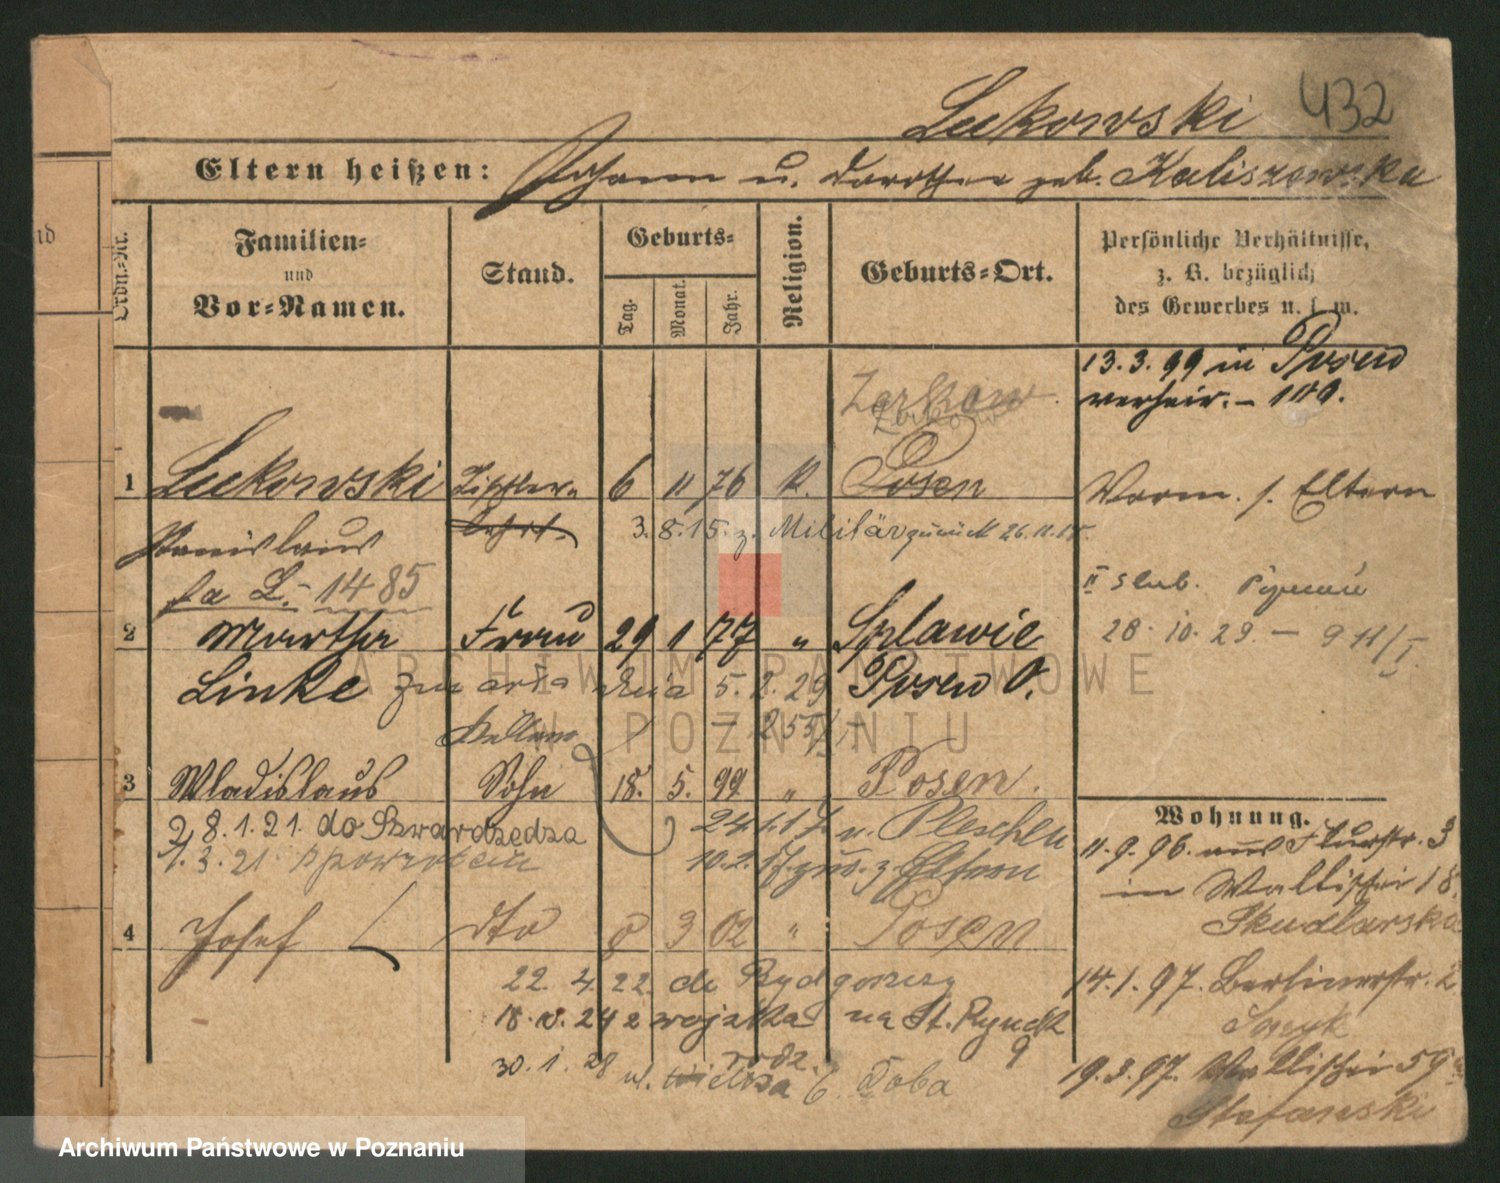 Lukowski 432
Eltern heißen: Johann u. Dorothea geb. Kaliszowska
nd
Ordn.-Nr.
Familien-
und
Vor-Namen.
Stand.
Geburts-
Tag.
Monat.
Jahr.
Religion.
Geburts-Ort.
Persönliche Verhältnisse,
z. B. bezüglich
des Gewerbes u. s. w.
13.3.99 in Posen
verheir. -
Zerkow
1 Lukowski Tischler 6 11 76 k. Posen
Vorm. s. Eltern
Stanislaus Lehrl. 3.8.15. z. Militär zurück 26.11.15.
fa L. - 1485
II slub.
28.10.29. -
2 Martha Frau 29 1 77 " Splawie
Linke zmarła dnia 5.2.29 Posen O.
3 Wladislaus Sohn 18. 5. 99 " Posen.
8.1.21. do Szwardzędza n. Pleschen
1.3.21 z powrotem z. Eltern
4 Josef dto 8 3 02 " Posen
22.4.22. do Bydgoszczy
18. 24 z wojska na St. Rynek
9
30.1.28 ul. Wielka 6
Wohnung.
11.9.96. aus Flurstr. 3
in Wallischei 18,
Skudlarska
14.1.97. Berlinerstr. 2
19.3.97. Wallischei 59
Stefanski
ARCHIWUM PAŃSTWOWE
W POZNANIU
Archiwum Państwowe w Poznaniu